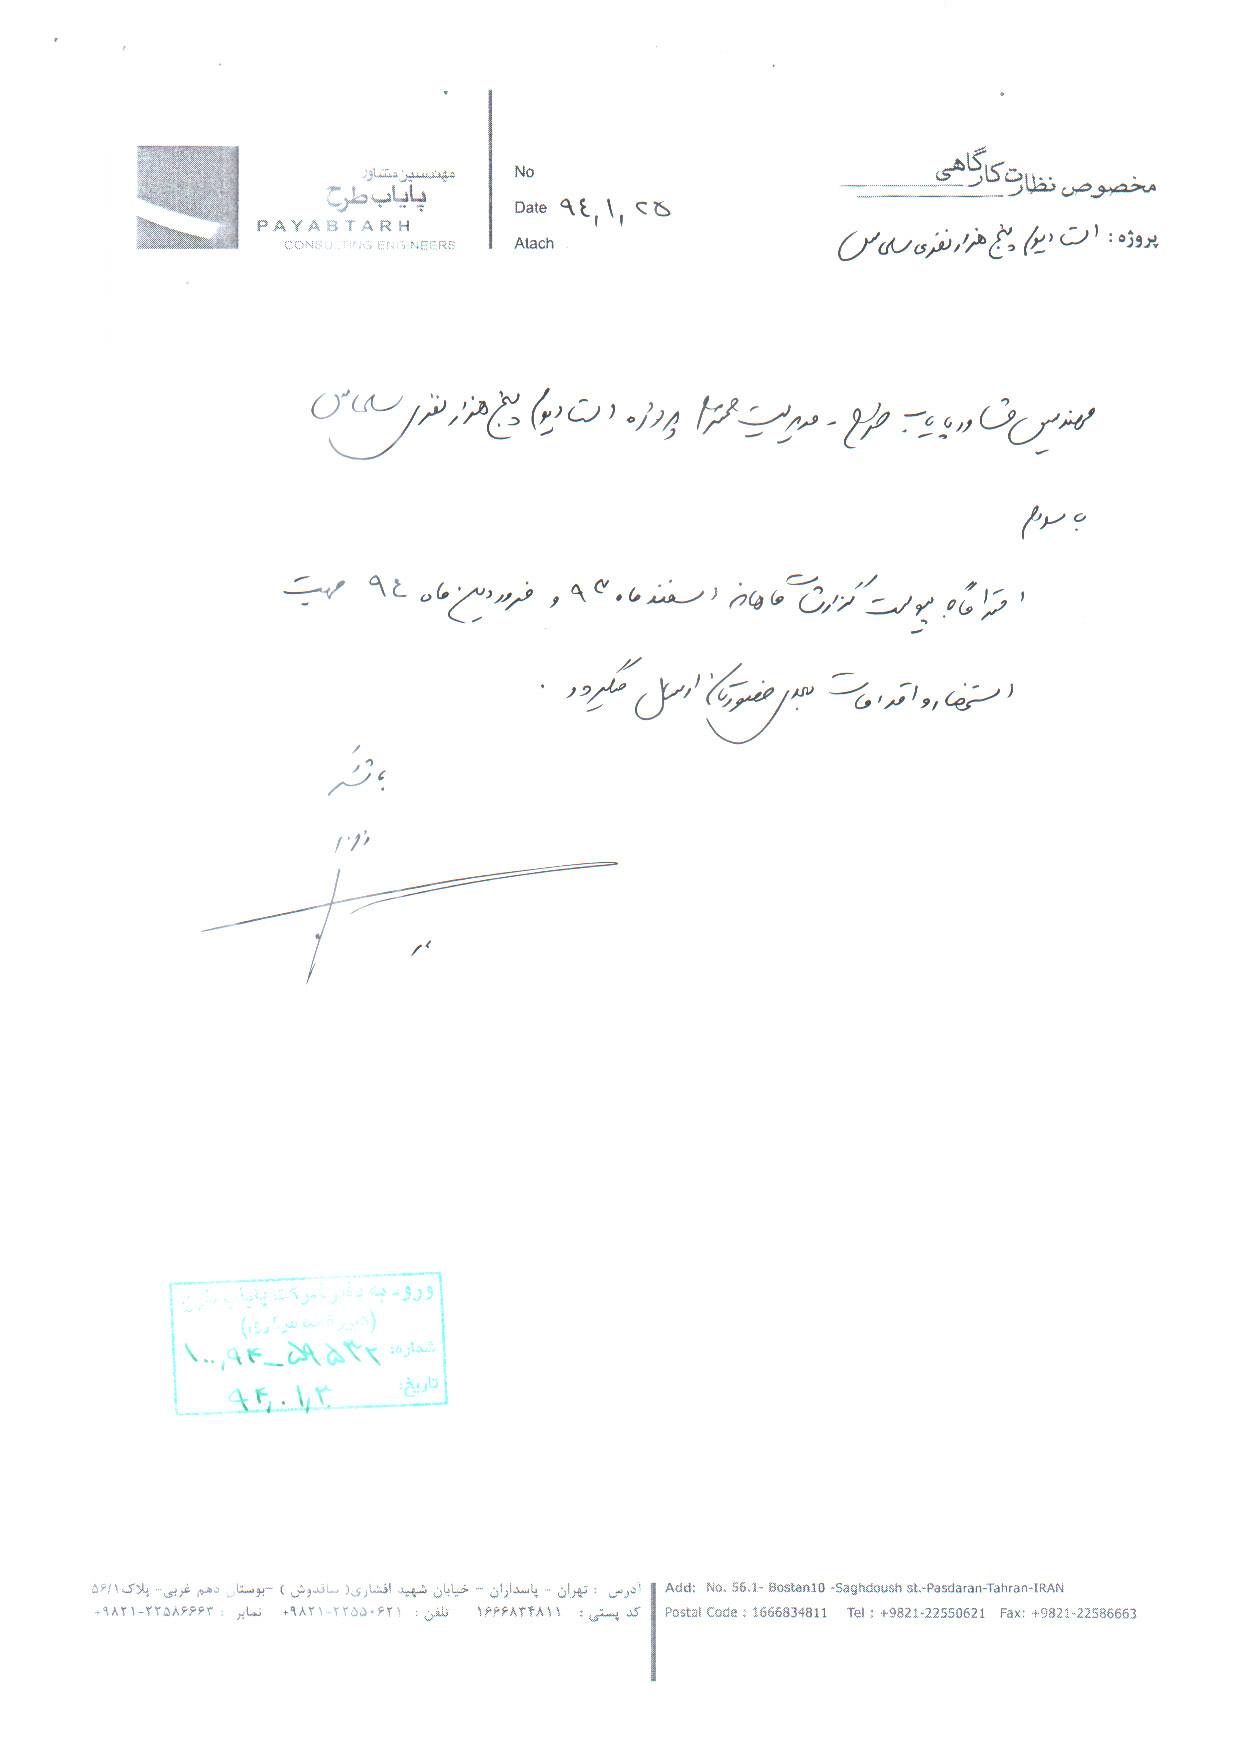 مخصوص نظارت کارگاهی
پروژه : استادیوم پنج هزار نفری سلماس
No
Date ۹۴,۱,۲۵
Atach
مهندسین مشاور
پایاب طرح
PAYABTARH
CONSULTING ENGINEERS
مهندسین مشاور پایاب طرح - مدیریت محترم پروژه استادیوم پنج هزار نفری سلماس
با سلام
احتراماً به پیوست گزارشات ماهانه اسفند ماه ۹۳ و فروردین ماه ۹۴ جهت
استحضار و اقدامات بعدی حضورتان ارسال میگردد .
با تشکر
ورود به دفتر شرکت پایاب طرح
شماره: ۱۰۰,۹۴-۵۹۵۳۲
تاریخ: ۹۴,۰۱,۳۰
آدرس : تهران - پاسداران - خیابان شهید افشاری( ساقدوش ) -بوستان دهم غربی- پلاک۵۶/۱
کد پستی : ۱۶۶۶۸۳۴۸۱۱ تلفن : ۲۲۵۵۰۶۲۱-۹۸۲۱+ نمابر : ۲۲۵۸۶۶۶۳-۹۸۲۱+
Add: No. 56.1- Bostan10 -Saghdoush st.-Pasdaran-Tahran-IRAN
Postal Code : 1666834811 Tel : +9821-22550621 Fax: +9821-22586663